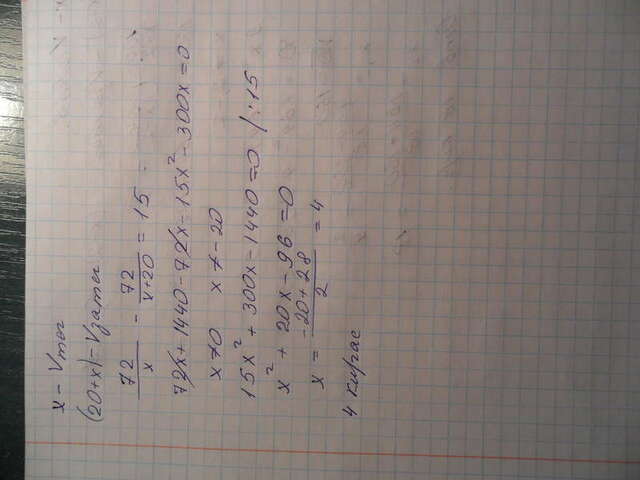 x - Vтег
(20+x) - Vзатег
72/x - 72/(x+20) = 15
72x + 1440 - 72x - 15x² - 300x = 0
x ≠ 0 x ≠ -20
15x² + 300x - 1440 = 0 / :15
x² + 20x - 96 = 0
x = (-20 + 28)/2 = 4
4 км/час